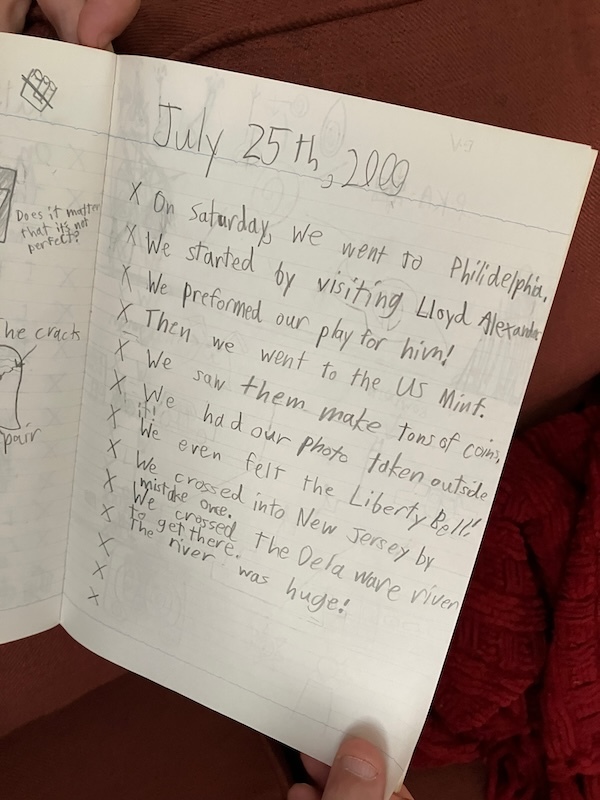 Does it matter
that it's not
perfect?
he crack
pair
July 25th, 2000
X On Saturday, we went to Philidelphia.
X We started by visiting Lloyd Alexander
X We preformed our play for him!
X Then we went to the US Mint.
X We saw them make tons of coins.
X We had our photo taken outside
it!
X We even felt the Liberty Bell!
X We crossed into New Jersey by
mistake once.
X We crossed the Dela ware river
X to get there.
X The river was huge!
X
X